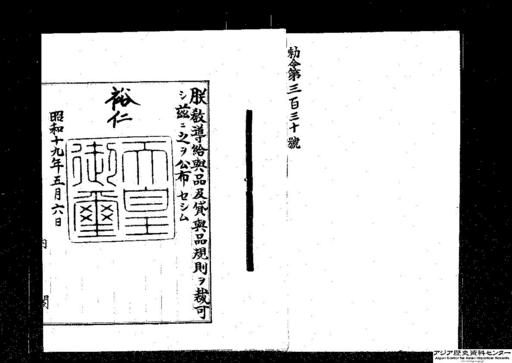 勅令第三百三十號
朕教導給與品及貸與品規則ヲ裁可
シ茲ニ之ヲ公布セシム
裕仁
天皇御璽
昭和十九年五月六日
内
閣
アジア歴史資料センター
Japan Center for Asian Historical Records